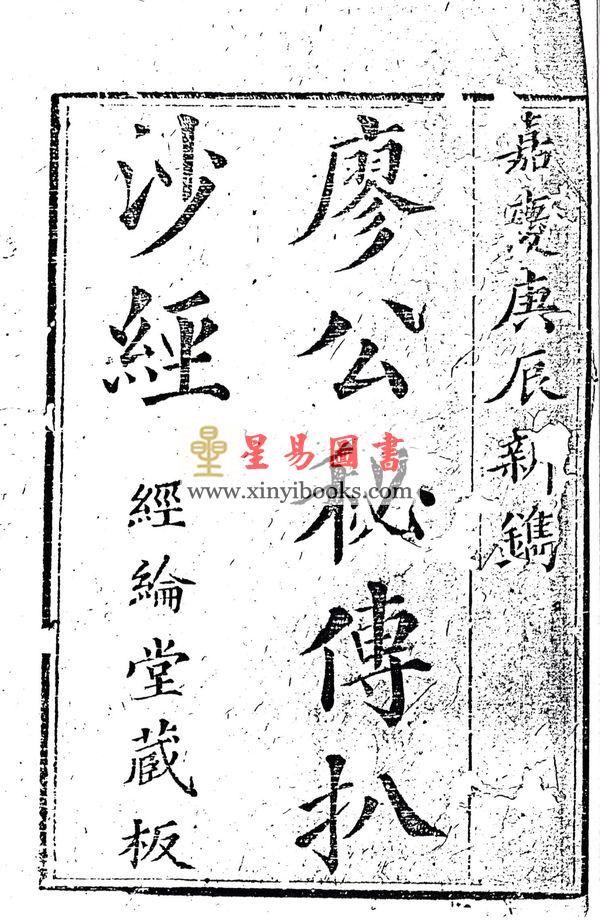 嘉慶庚辰新鐫
廖公秘傳扒
沙經
經綸堂藏板
星易圖書
www.xinyibooks.com